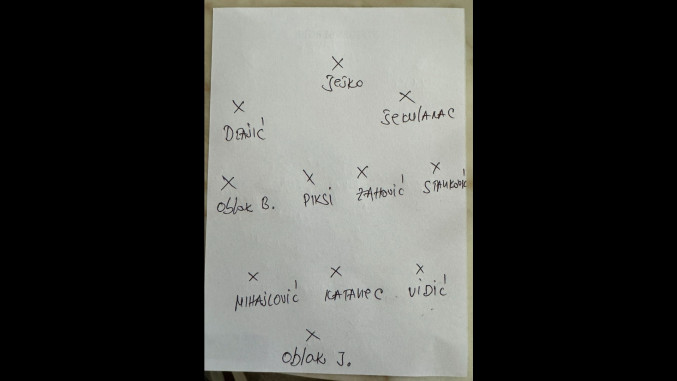 Ješko
Šekularac
Denić
Oblak B.
Piksi
Zahović
Stanković
Mihajlović
Katanec
Vidić
Oblak J.